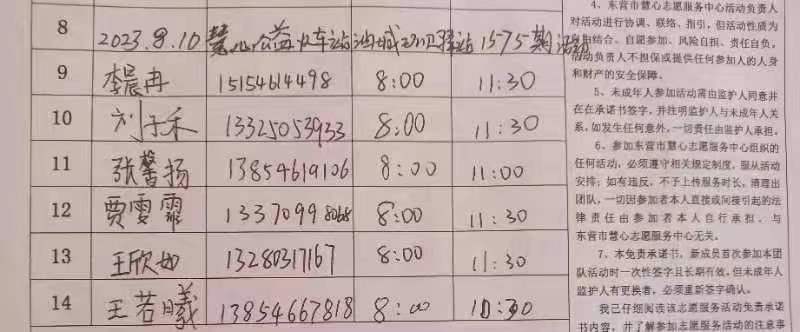 8
2023.8.10 慧心公益火车站油城 驿站1575期活动
9 李晨冉 15154614498 8:00 11:30
10 刘子禾 13325053933 8:00 11:30
11 张馨扬 13854619106 8:00 11:00
12 贾雯霏 13370998068 8:00 11:30
13 王欣如 13280317167 8:00 11:30
14 王若曦 13854667818 8:00 10:30
4、东营市慧心志愿服务中心活动负责人
对活动进行协调、联络、指引，但活动性质为
自由结合、自愿参加、风险自担、责任自负，
活动负责人不担保或提供任何参加人的人身
和财产的安全保障。
5、未成年人参加活动需由监护人同意并
在在承诺书签字，并注明监护人与未成年人关
系，如发生任何意外，一切责任由监护人承担。
6、参加东营市慧心志愿服务中心组织的
任何活动，必须遵守相关规定制度，服从活动
安排；如有违反，不予上传服务时长，清理出
团队，一切因参加者本人直接或间接引起的法
律责任由参加者本人自行承担，与
东营市慧心志愿服务中心无关。
7、本免责承诺书，新成员首次参加本团
队活动时一次性签字且长期有效，但未成年人
监护人有更换者，必须重新签字确认。
我已仔细阅读该志愿服务活动免责承诺
书内容，并了解参加志愿服务活动的注意事